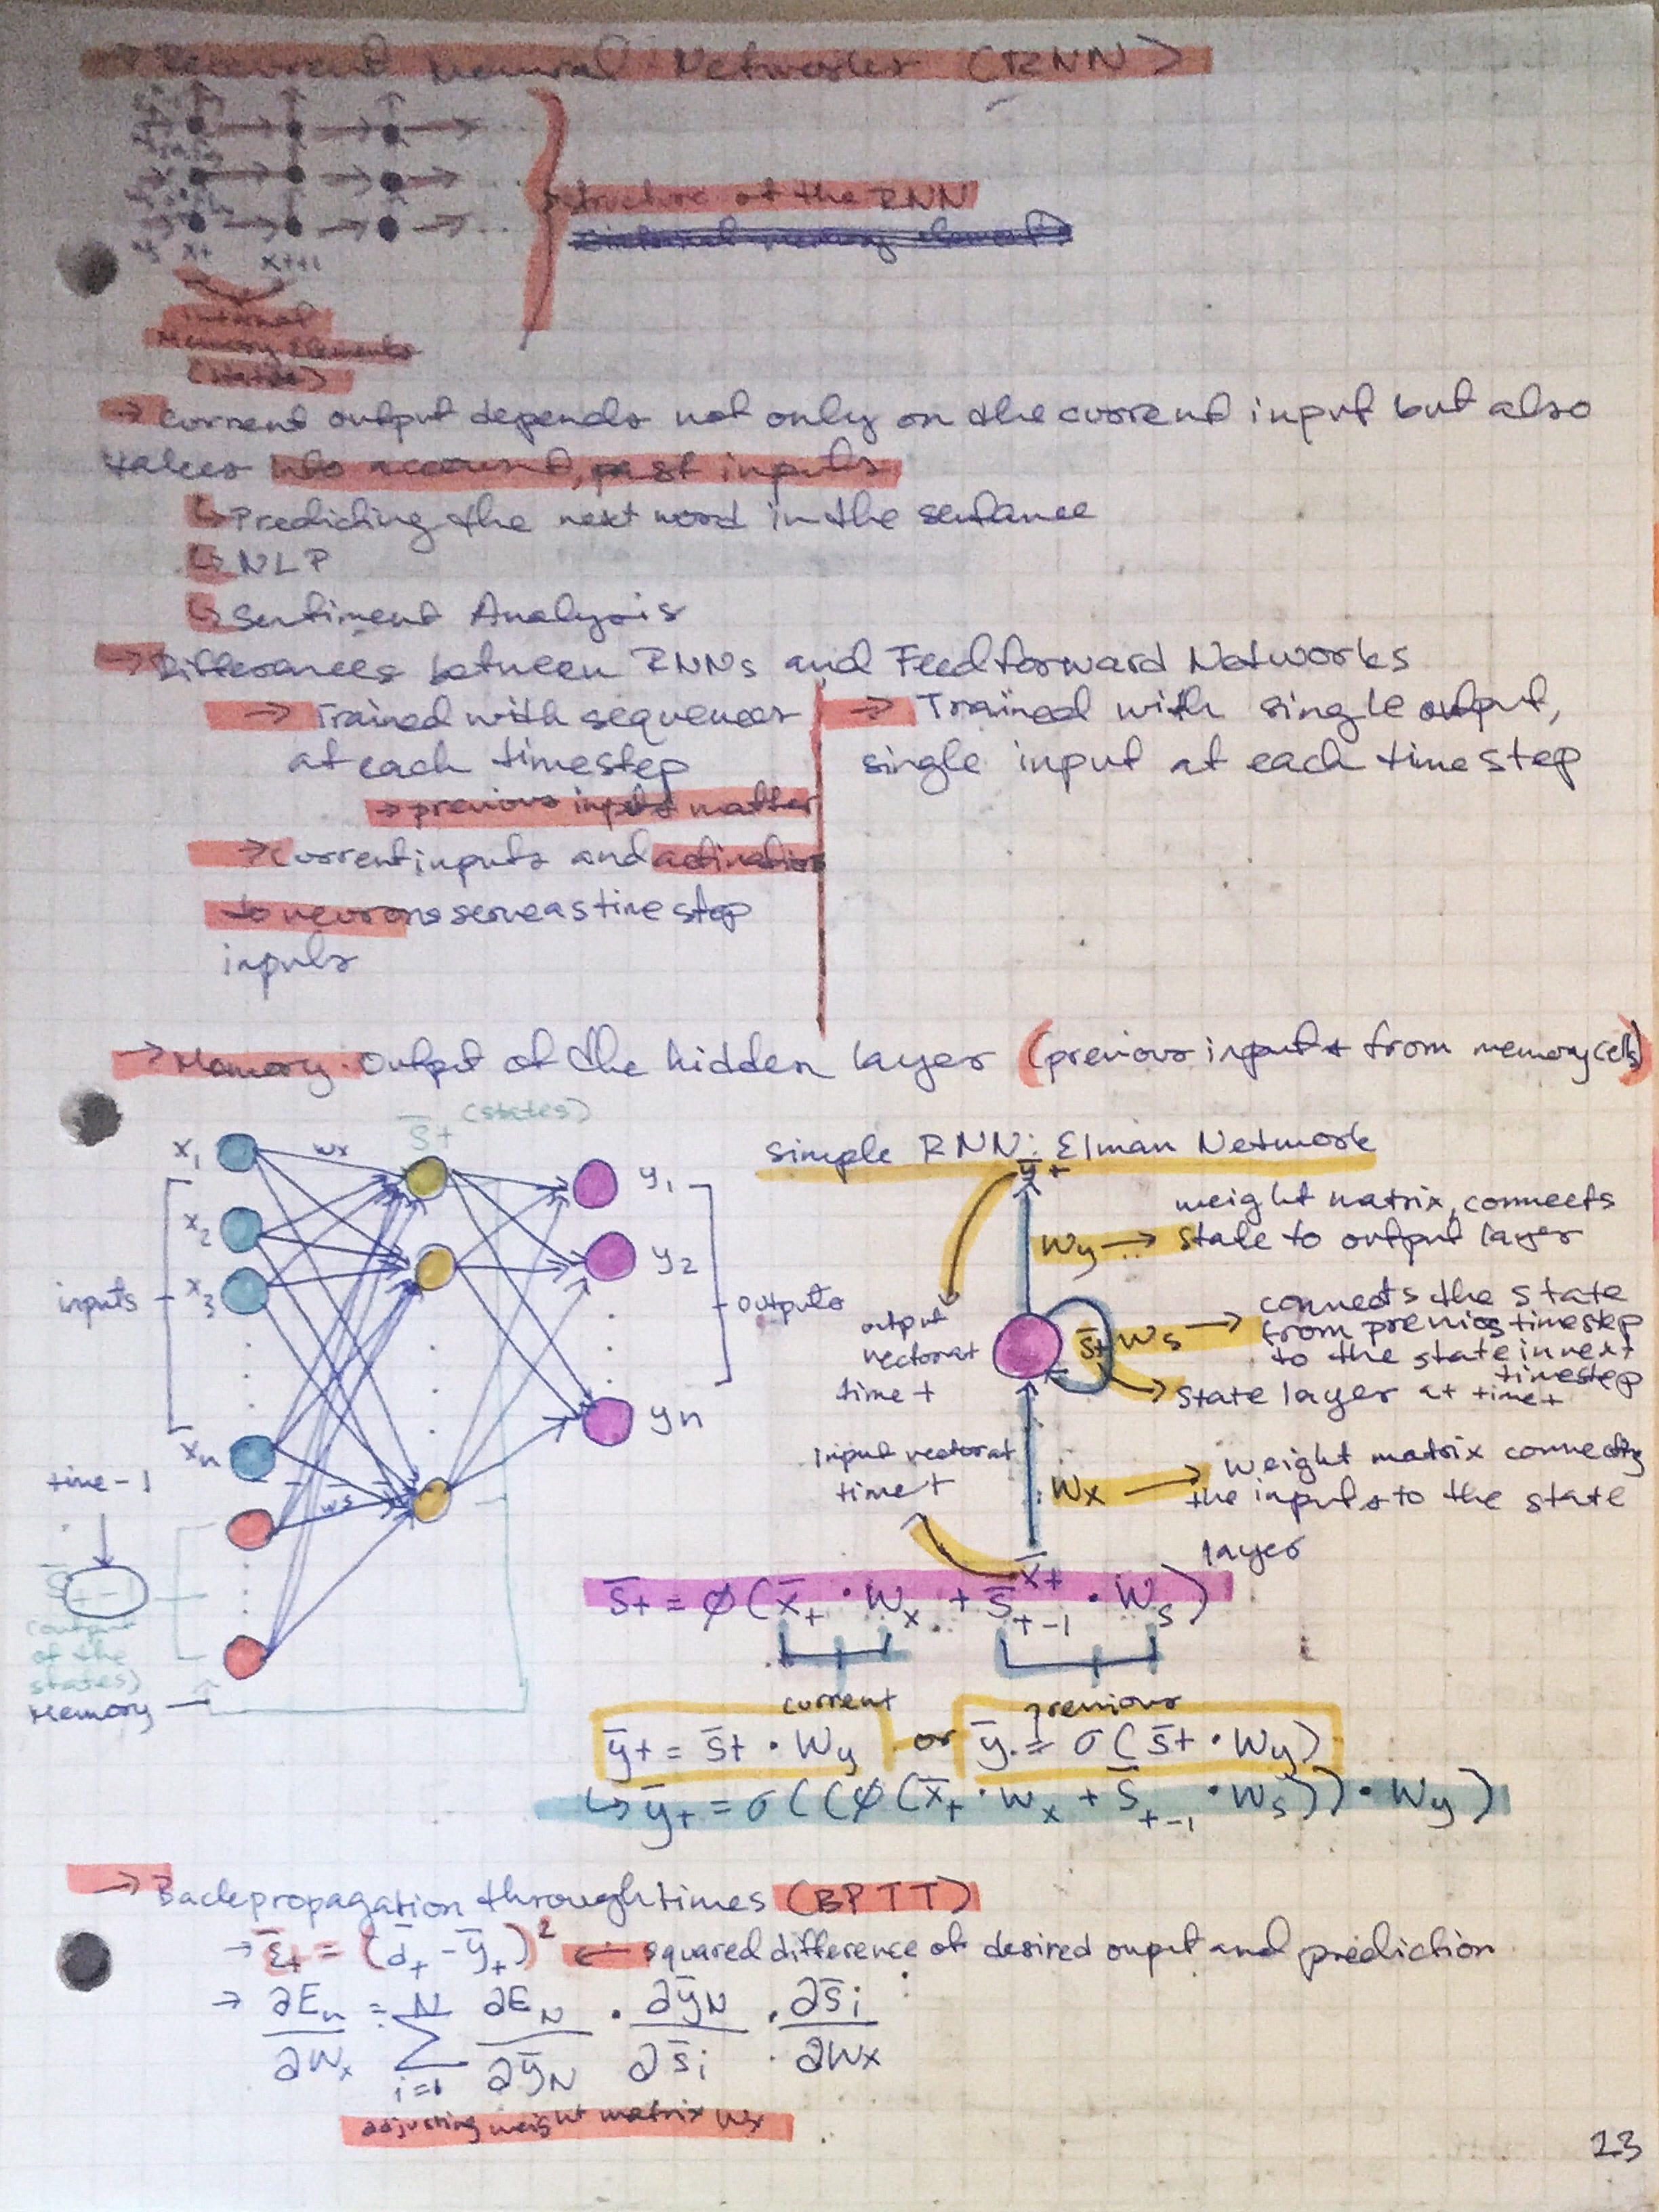 → Recurrent Neural Networks (RNN)
structure of the RNN
xt xt+1
Internal
Memory Elements
(states)
→ Current output depends not only on the current input but also
takes into account, past inputs
↳ Predicting the next word in the sentance
↳ NLP
↳ Sentiment Analysis
→ Differances between RNNs and Feedforward Networks
→ Trained with sequences
at each timestep
→ previous inputs matter
→ Current inputs and activations
to neurons serve as time step
inputs
→ Trained with single output,
single input at each time step
→ Memory: Output of the hidden layer (previous inputs from memory cells)
s̄t (states)
x1 wx y1
x2 y2
inputs x3 outputs
xn yn
time-1
ws
s̄t-1
(output
of the
states)
Memory
Simple RNN: Elman Network
ȳt
Wy → weight matrix, connects
state to output layer
output
vector at
time t
s̄t Ws → connects the state
from previos timestep
to the state in next
timestep
→ State layer at time t
Input vector at
time t
Wx → weight matrix connecting
the inputs to the state
layer
x̄t
s̄t = ϕ(x̄t · Wx + s̄t-1 · Ws)
current previous
ȳt = s̄t · Wy or ȳt = σ(s̄t · Wy)
↳ ȳt = σ((ϕ(x̄t · Wx + s̄t-1 · Ws)) · Wy)
→ Backpropagation through times (BPTT)
→ Ēt = (d̄t - ȳt)² ← squared difference of desired ouput and prediction
→ ∂En/∂Wx = Σ i=1 N ∂EN/∂ȳN · ∂ȳN/∂s̄i · ∂s̄i/∂Wx
adjusting weight matrix Wx
23